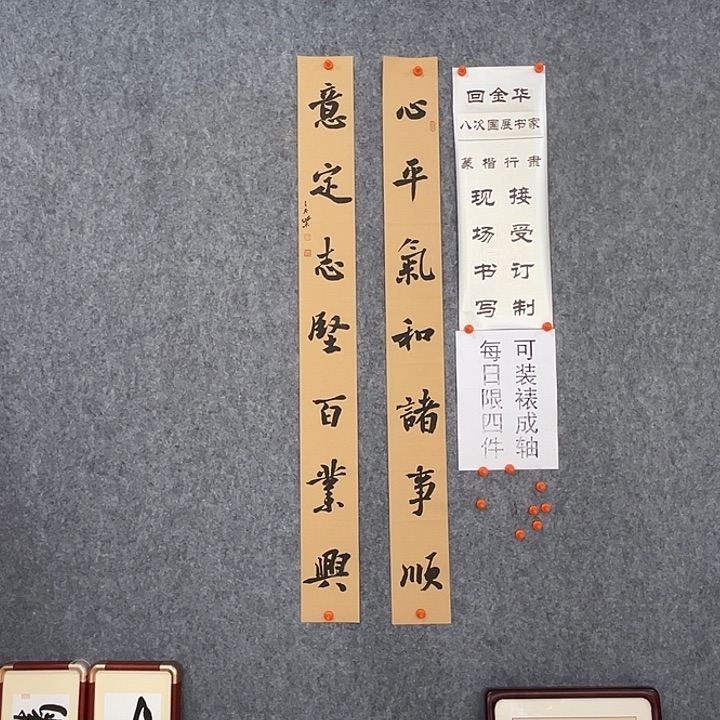 回金华
八次国展书家
篆楷行隶
接受订制
现场书写
可装裱成轴
每日限四件
心平氣和諸事順
意定志堅百業興